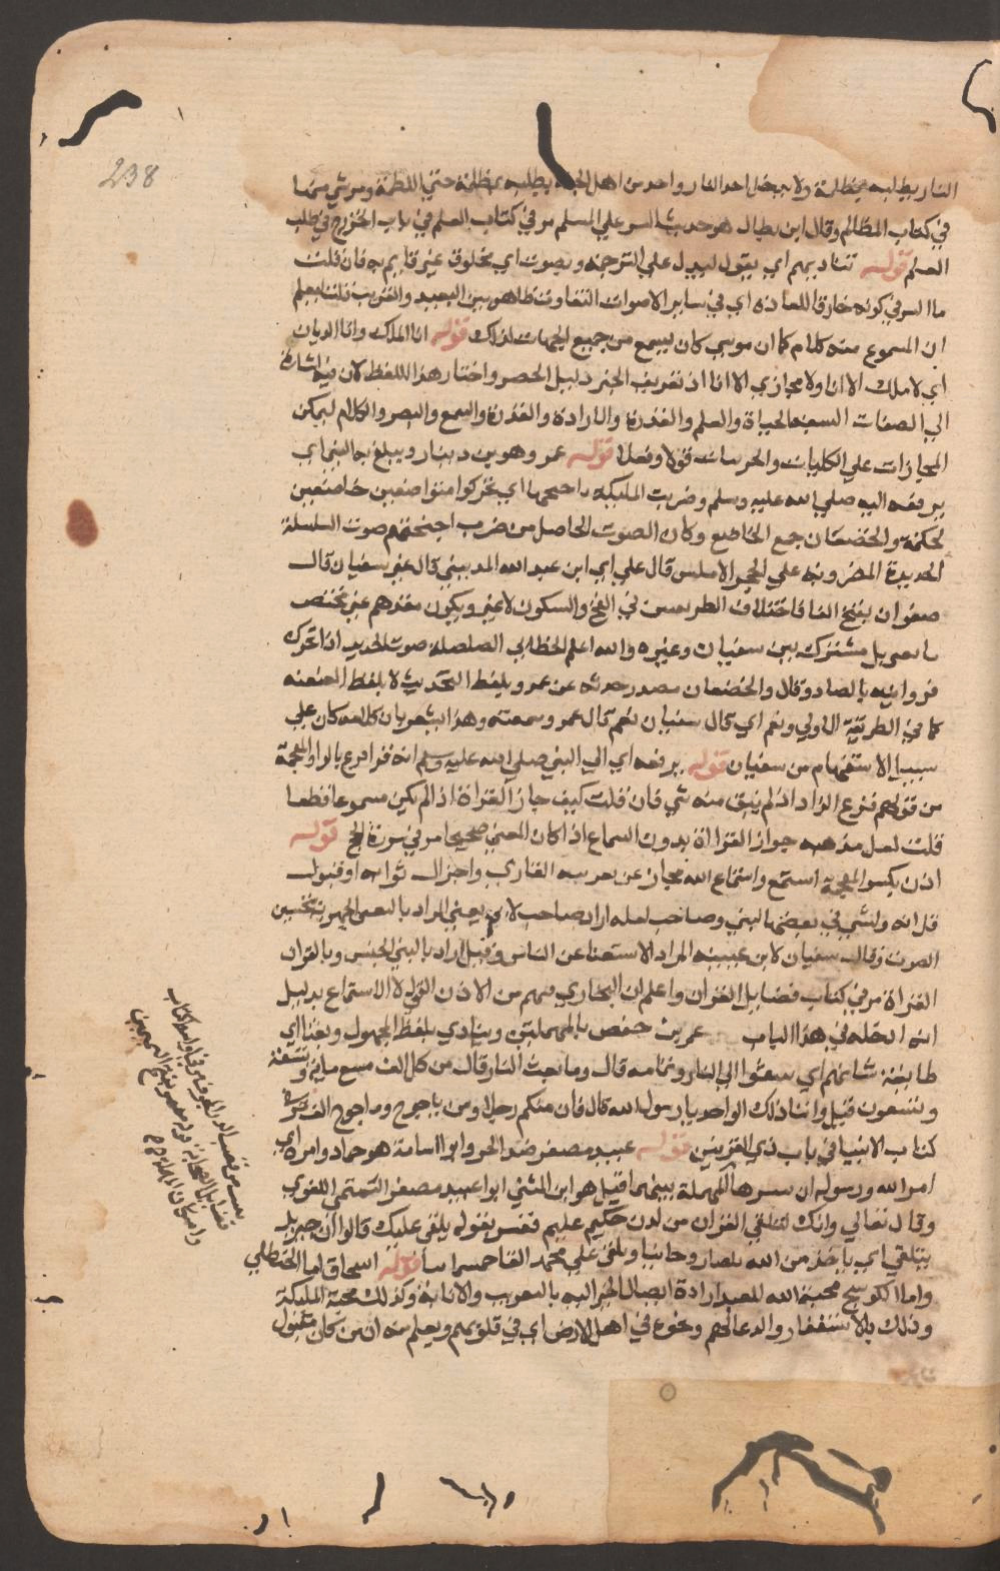 238
النار يطلبه بمظلمة ولا يدخل احد النار واحد من اهل الجنة يطلبه بمظلمة حتي اللطمة ومر شي منها
في كتاب المظالم وقال ابن بطال هو حديث السر علي المسلم مر في كتاب العلم في باب الخروج في طلب
العلم قوله تناديهم اي يقول ليدل علي الترجمة وبصوت اي مخلوق غير قايم به فان قلت
ما السر في كونه خارقا للعادة اي في ساير الاصوات التفاوت ظاهر بين البعيد والقريب قلت ليعلم
ان المسموع منه كلام كما ان موسي كان يسمع من جميع الجهات لذلك قوله انا الملك وانا الديان
اي لا ملك الا انا ولا مجازي الا انا اذ تعريف الخبر دليل الحصر واختار هذا اللفظ لان فيه اشارة
الي الصفات السبعة الحياة والعلم والقدرة والارادة والقدرة والسمع والبصر والكلام ليمكن
المجازات علي الكليات والجزييات قولا وفعلا قوله عمر وهو بن دينار ويبلغ به النبي اي
يرفعه اليه صلي الله عليه وسلم وضربت المليكة باجنحتها اي تحركوا متواضعين خاضعين
لحكمه والخضعان جمع الخاضع وكان الصوت الحاصل من ضرب اجنحتهم صوت السلسلة
الحديدة المضروبة علي الحجر الاملس قال علي اي ابن عبد الله المديني قال غير سفيان قال
صفوان بفتح الفا فاختلاف الطريقين في الفتح والسكون لا غير ويكون منفذهم غير مختص
بل مشترك بين سفيان وغيره والله اعلم الخطابي الصلصلة صوت الحديد اذا تحرك
فروايته بالصاد وقال والخضعان مصدر حدثه عن عمر وبلفظ التحديث لا بلفظ العنعنة
كما في الطريقة الاولي ونعم اي قال سفيان نعم قال عمر وسمعته وهذا يشعر بان كلامه كان علي
سبيل الاستفهام من سفيان قوله يرفعه اي الي النبي صلي الله عليه وسلم انه قرا فرغ بالراء والمعجمة
من قولهم فرغ الزاد اذا لم يبق منه شي فان قلت كيف جاز القراة اذ الم يكن مسموعا قطعا
قلت لعل مذهبه جواز القراة بدون السماع اذا كان المعني صحيحا مر في سورة الحج قوله
اذن بكسر المعجمة استمع واستماع الله مجاز عن تقريبه القاري واجزال ثوابه او قبول
قراته ولشي في بعضها لنبي وصاحب لعله اراد صاحب لابي يعني المراد بالتغني الجهر به بتحسين
الصوت وقال سفيان لابن عيينه المراد الاستغنا عن الناس وقيل اراد بالنبي الجنس وبالقران
القراة مر في كتاب فضايل القران واعلم ان البخاري فهم من الاذن القول لا الاستماع بدليل
انه ادخله في هذا الباب عمر بن حفص بالمهملتين وينادي بلفظ المجهول وبعثا اي
طايفة شانهم اي يبعثوا الي النار وتمامه قال وما بعث النار قال من كل الف تسع ماية وتسعة
وتسعون قيل واينا ذلك الواحد يا رسول الله قال فان منكم رجلا ومن ياجوج وماجوج الف مر في
كتاب الانبيا في باب ذي القرنين قوله عبيد مصغر ضد الحر وابوا اسامة هو حماد وامره اي
امر الله ورسوله ان بينهما قيل هو ابن المثني ابوا عبيد مصغر التيمي اللغوي
وقال تعالي وانك لتلقي القران من لدن حكيم عليم ففسر بقوله يلقي عليك قالوا ان جبريل
يتلقي اي ياخذ من الله تلقيا روحانيا ويلقي علي محمد القا جسمانيا قوله اسحاق اما الحنظلي
واما الكوسج محبة الله للعبد ارادة ايصال الخير اليه بالتقريب والاثابة وكذلك محبة المليكة
وذلك بالاستغفار والدعا لهم ونحوه في اهل الارض اي في قلوبهم ويعلم منه ان من كان مقبول